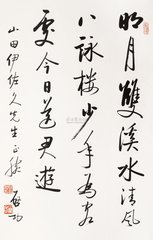 明月雙溪水清風
八詠樓少年為客
處今日送君遊
山田伊佐久先生正腕
啟功